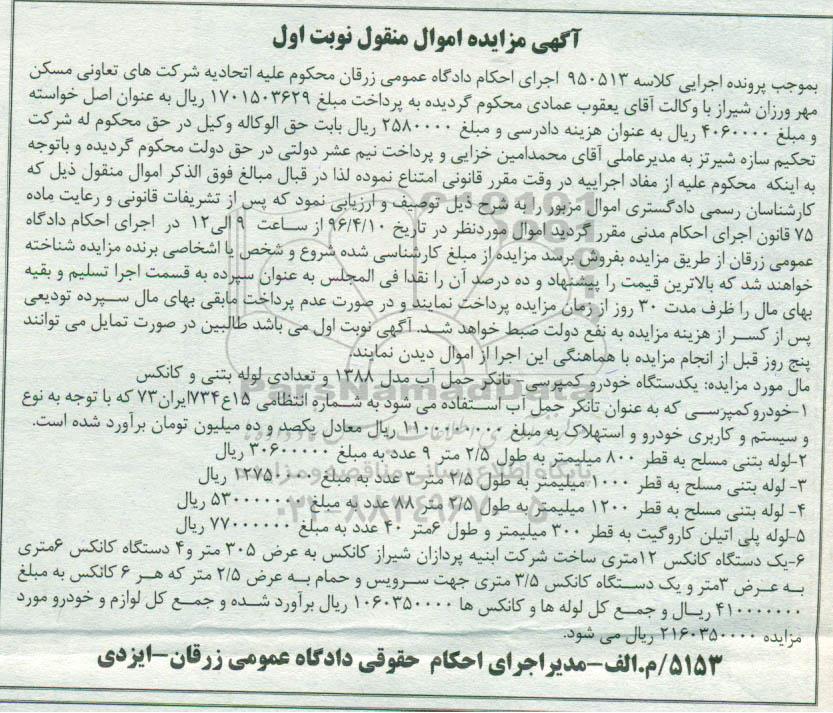 آگهی مزایده اموال منقول نوبت اول
بموجب پرونده اجرایی کلاسه ۹۵۰۵۱۳ اجرای احکام دادگاه عمومی زرقان محکوم علیه اتحادیه شرکت های تعاونی مسکن
مهر ورزان شیراز با وکالت آقای یعقوب عمادی محکوم گردیده به پرداخت مبلغ ۱۷۰۱۵۰۳۶۲۹ ریال به عنوان اصل خواسته
و مبلغ ۴۰۶۰۰۰۰ ریال به عنوان هزینه دادرسی و مبلغ ۲۵۸۰۰۰۰ ریال بابت حق الوکاله وکیل در حق محکوم له شرکت
تحکیم سازه شیرتز به مدیرعاملی آقای محمدامین خزایی و پرداخت نیم عشر دولتی در حق دولت محکوم گردیده و باتوجه
به اینکه محکوم علیه از مفاد اجراییه در وقت مقرر قانونی امتناع نموده لذا در قبال مبالغ فوق الذکر اموال منقول ذیل که
کارشناسان رسمی دادگستری اموال مزبور را به شرح ذیل توصیف و ارزیابی نمود که پس از تشریفات قانونی و رعایت ماده
۷۵ قانون اجرای احکام مدنی مقرر گردید اموال موردنظر در تاریخ ۹۶/۴/۱۰ از ساعت ۹ الی۱۲ در اجرای احکام دادگاه
عمومی زرقان از طریق مزایده بفروش برسد مزایده از مبلغ کارشناسی شده شروع و شخص یا اشخاصی برنده مزایده شناخته
خواهند شد که بالاترین قیمت را پیشنهاد و ده درصد آن را نقدا فی المجلس به عنوان سپرده به قسمت اجرا تسلیم و بقیه
بهای مال را ظرف مدت ۳۰ روز از زمان مزایده پرداخت نمایند و در صورت عدم پرداخت مابقی بهای مال سپرده تودیعی
پس از کسر از هزینه مزایده به نفع دولت ضبط خواهد شد. آگهی نوبت اول می باشد طالبین در صورت تمایل می توانند
پنج روز قبل از انجام مزایده با هماهنگی این اجرا از اموال دیدن نمایند.
مال مورد مزایده: یکدستگاه خودرو کمپرسی - تانکر حمل آب مدل ۱۳۸۸ و تعدادی لوله بتنی و کانکس
۱-خودروکمپرسی که به عنوان تانکر حمل آب استفاده می شود به شماره انتظامی ۱۵ع۷۳۴ایران۷۳ که با توجه به نوع
و سیستم و کاربری خودرو و استهلاک به مبلغ ۱۱۰۰۰۰۰۰۰۰ ریال معادل یکصد و ده میلیون تومان برآورد شده است.
۲-لوله بتنی مسلح به قطر ۸۰۰ میلیمتر به طول ۲/۵ متر ۹ عدد به مبلغ ۳۰۶۰۰۰۰۰ ریال
۳- لوله بتنی مسلح به قطر ۱۰۰۰ میلیمتر به طول ۲/۵ متر ۳ عدد به مبلغ ۱۲۷۵۰۰۰۰ ریال
۴- لوله بتنی مسلح به قطر ۱۲۰۰ میلیمتر به طول ۲/۵ متر ۸۸ عدد به مبلغ ۵۳۰۰۰۰۰۰۰ ریال
۵-لوله پلی اتیلن کاروگیت به قطر ۳۰۰ میلیمتر و طول ۶متر ۴۰ عدد به مبلغ ۷۷۰۰۰۰۰۰ ریال
۶-یک دستگاه کانکس ۱۲متری ساخت شرکت ابنیه پردازان شیراز کانکس به عرض ۳۰۵ متر و۴ دستگاه کانکس ۶متری
به عرض ۳متر و یک دستگاه کانکس ۳/۵ متری جهت سرویس و حمام به عرض ۲/۵ متر که هر ۶ کانکس به مبلغ
۴۱۰۰۰۰۰۰۰ ریال و جمع کل لوله ها و کانکس ها ۱۰۶۰۳۵۰۰۰۰ ریال برآورد شده و جمع کل لوازم و خودرو مورد
مزایده ۲۱۶۰۳۵۰۰۰۰ ریال می شود.
۵۱۵۳/م.الف-مدیراجرای احکام حقوقی دادگاه عمومی زرقان-ایزدی
ParsNamadData
پایگاه اطلاع رسانی مناقصه و مزایده
۰۲۱-۸۸۳۴۹۶۷۰-۵